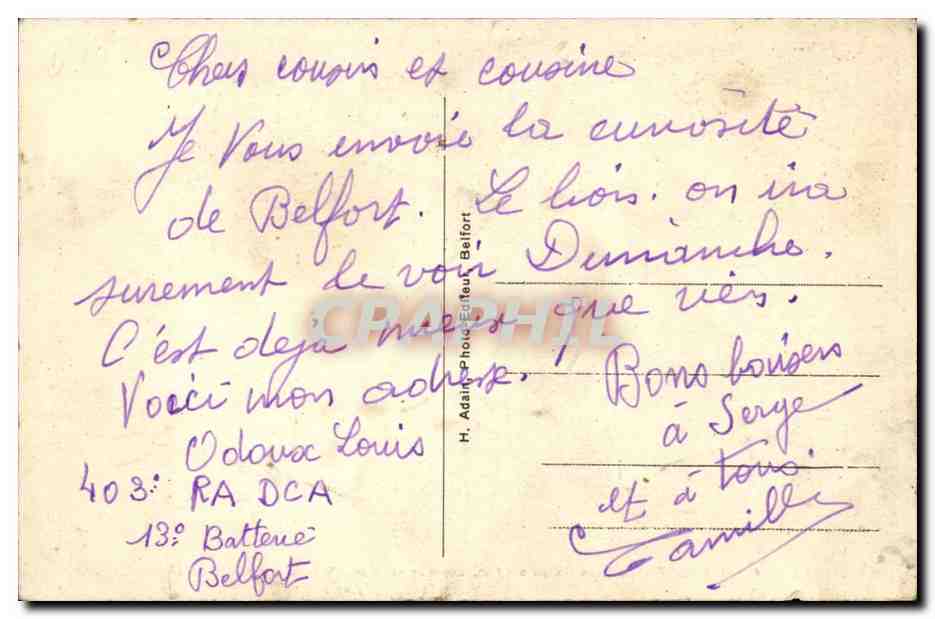 Chers cousins et cousine
Je Vous envoie la curiosité
de Belfort. Le lion. on ira
surement le voir Dimanche.
C'est dejà mieux que rien.
Voici mon adresse.
Odoux Louis
403: RA DCA
13: Batterie
Belfort
Bons baisers
à Serge
et à tous.
Camille
H. Adain, Photo-Editeur, Belfort
CPAPHIL